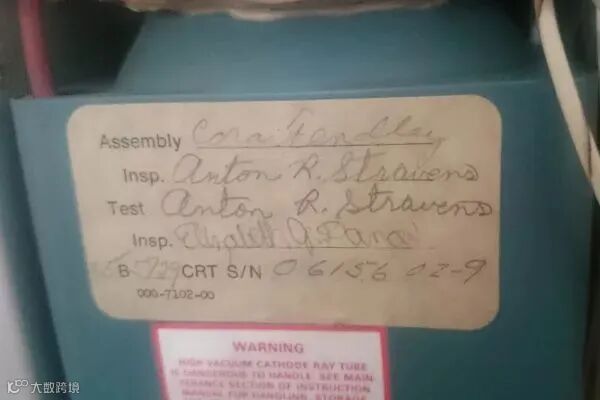 Assembly Cora Fendley
Insp. Anton R. Stravens
Test Anton R. Stravens
Insp. Elizabeth G.
B 729 CRT S/N 0615602-9
000-7102-00
WARNING
HIGH VACUUM CATHODE RAY TUBE
IS DANGEROUS TO HANDLE. SEE MAIN
TENANCE SECTION OF INSTRUCTION
MANUAL FOR HANDLING, STORAGE
大数跨境